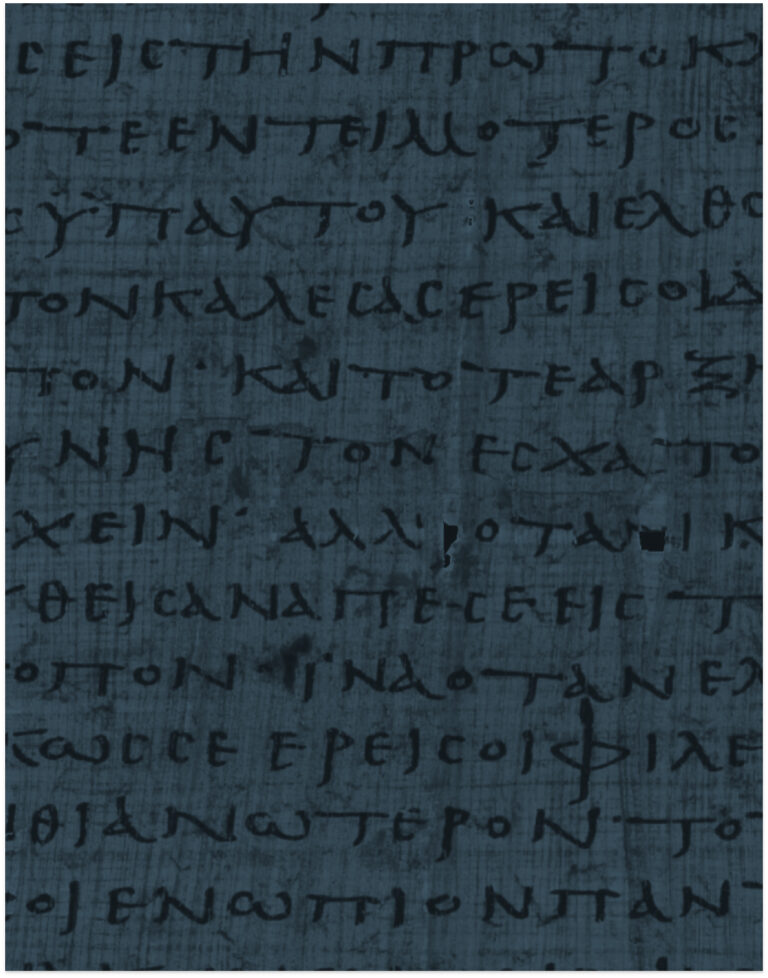 ϹΕΙϹΤΗΝΠΡΩΤΟΚΛ
ΟΤΕΕΝΤΕΙΜΟΤΕΡΟϹ
ϹΫΠΑΥΤΟΥ ΚΑΙΕΛΘ
ΤΟΝΚΑΛΕϹΑϹΕΡΕΙϹΟΙΔ
ΤΟΝ· ΚΑΙΤΟΤΕΑΡΞΗ
ΥΝΗϹΤΟΝΕϹΧΑΤΟ
ΧΕΙΝ· ΑΛΛ’ΟΤΑΝ Κ
ΘΕΙϹΑΝΑΠΕϹΕΕΙϹΤ
ΟΠΟΝ ΪΝΑΟΤΑΝΕΛ
ΚΩϹϹΕΕΡΕΙϹΟΙΦΙΛΕ
ΗΘΙΑΝΩΤΕΡΟΝ·ΤΟ
ϹΟΙΕΝΩΠΙΟΝΠΑΝ